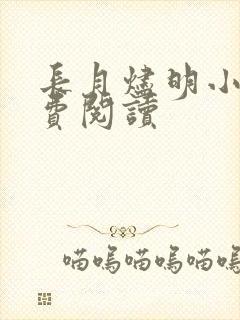 長月燼明小
費閱讀
喵嗚喵嗚喵嗚